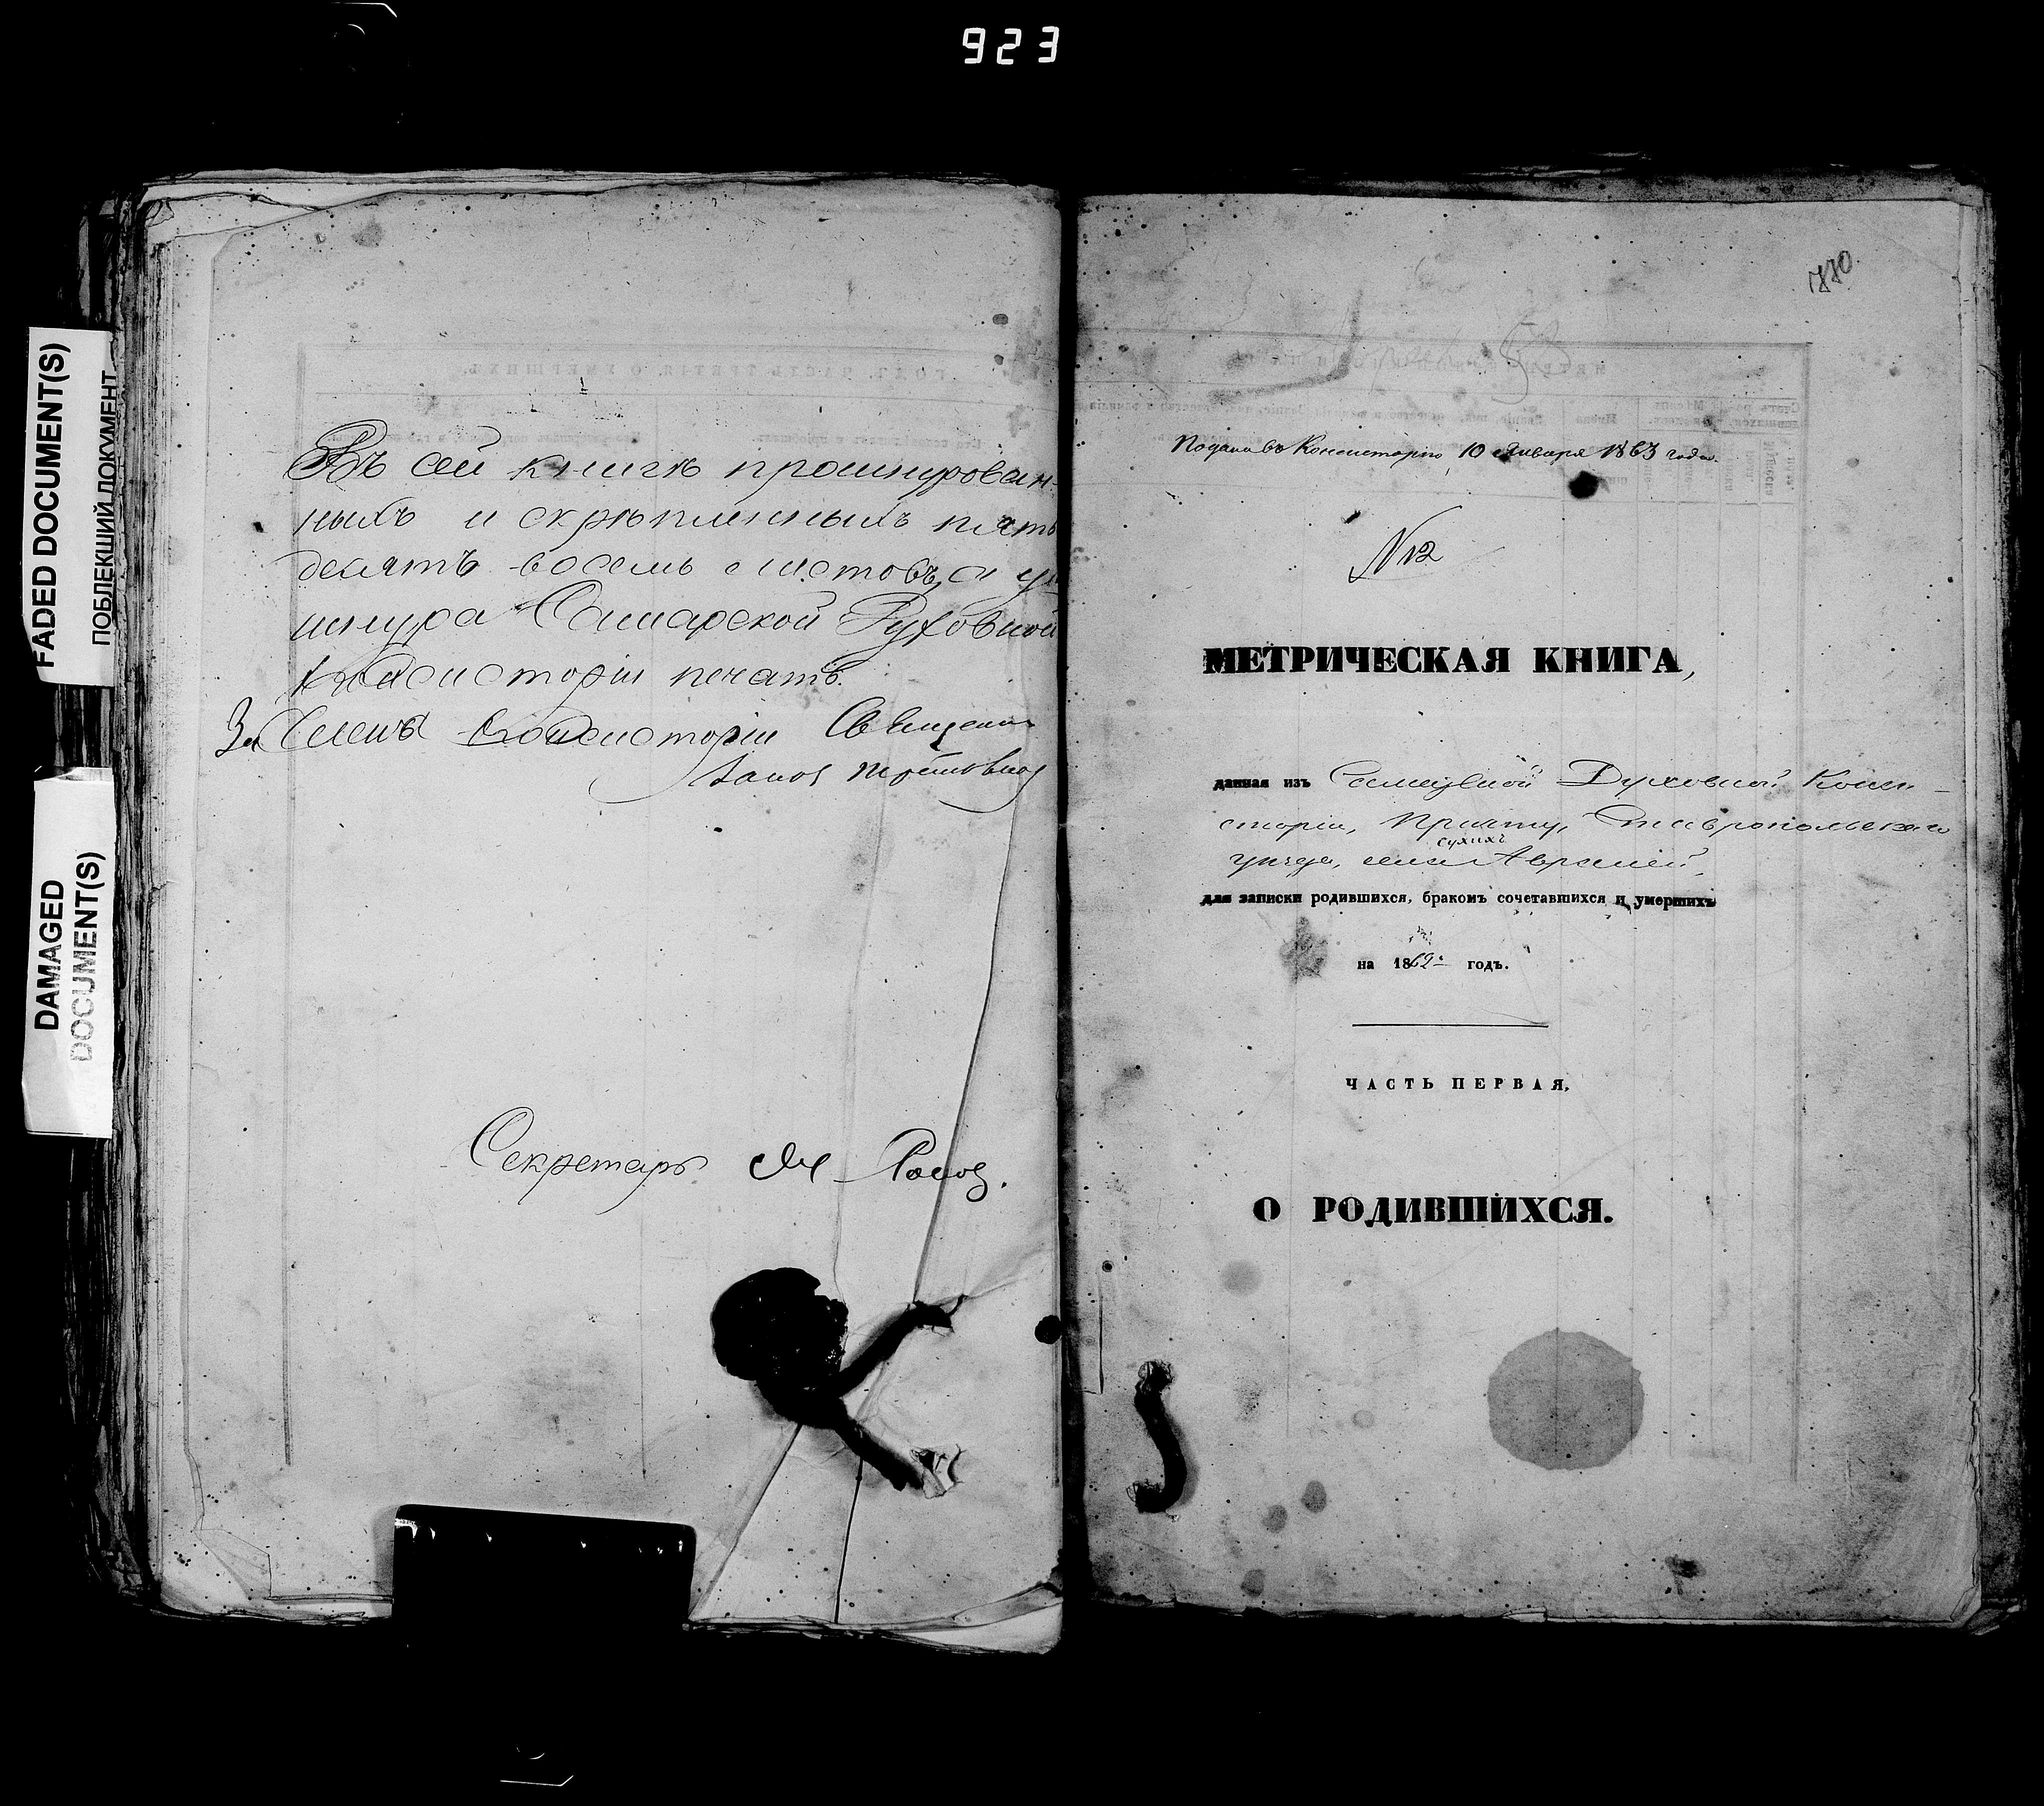 923
FADED DOCUMENT(S)
ПОБЛЕКШИЙ ДОКУМЕНТ
DAMAGED
DOCUMENT(S)
Въ сей книгѣ прошнурован-
ныхъ и скрѣпленныхъ пять
десятъ восемь листовъ, а у
шнура Самарской Духовной
Консисторіи печать.
За Члена Консисторіи Священникъ
Секретарь
770.
Подана въ Консисторію 10 Января 1863 года.
№ 12
МЕТРИЧЕСКАЯ КНИГА,
данная изъ Самарской Духовной Конси-
сторіи, Причту, Ставропольскаго
сухихъ
уѣзда, села Авралей,
для записки родившихся, бракомъ сочетавшихся и умершихъ
на 1862 годъ.
ЧАСТЬ ПЕРВАЯ,
О РОДИВШИХСЯ.